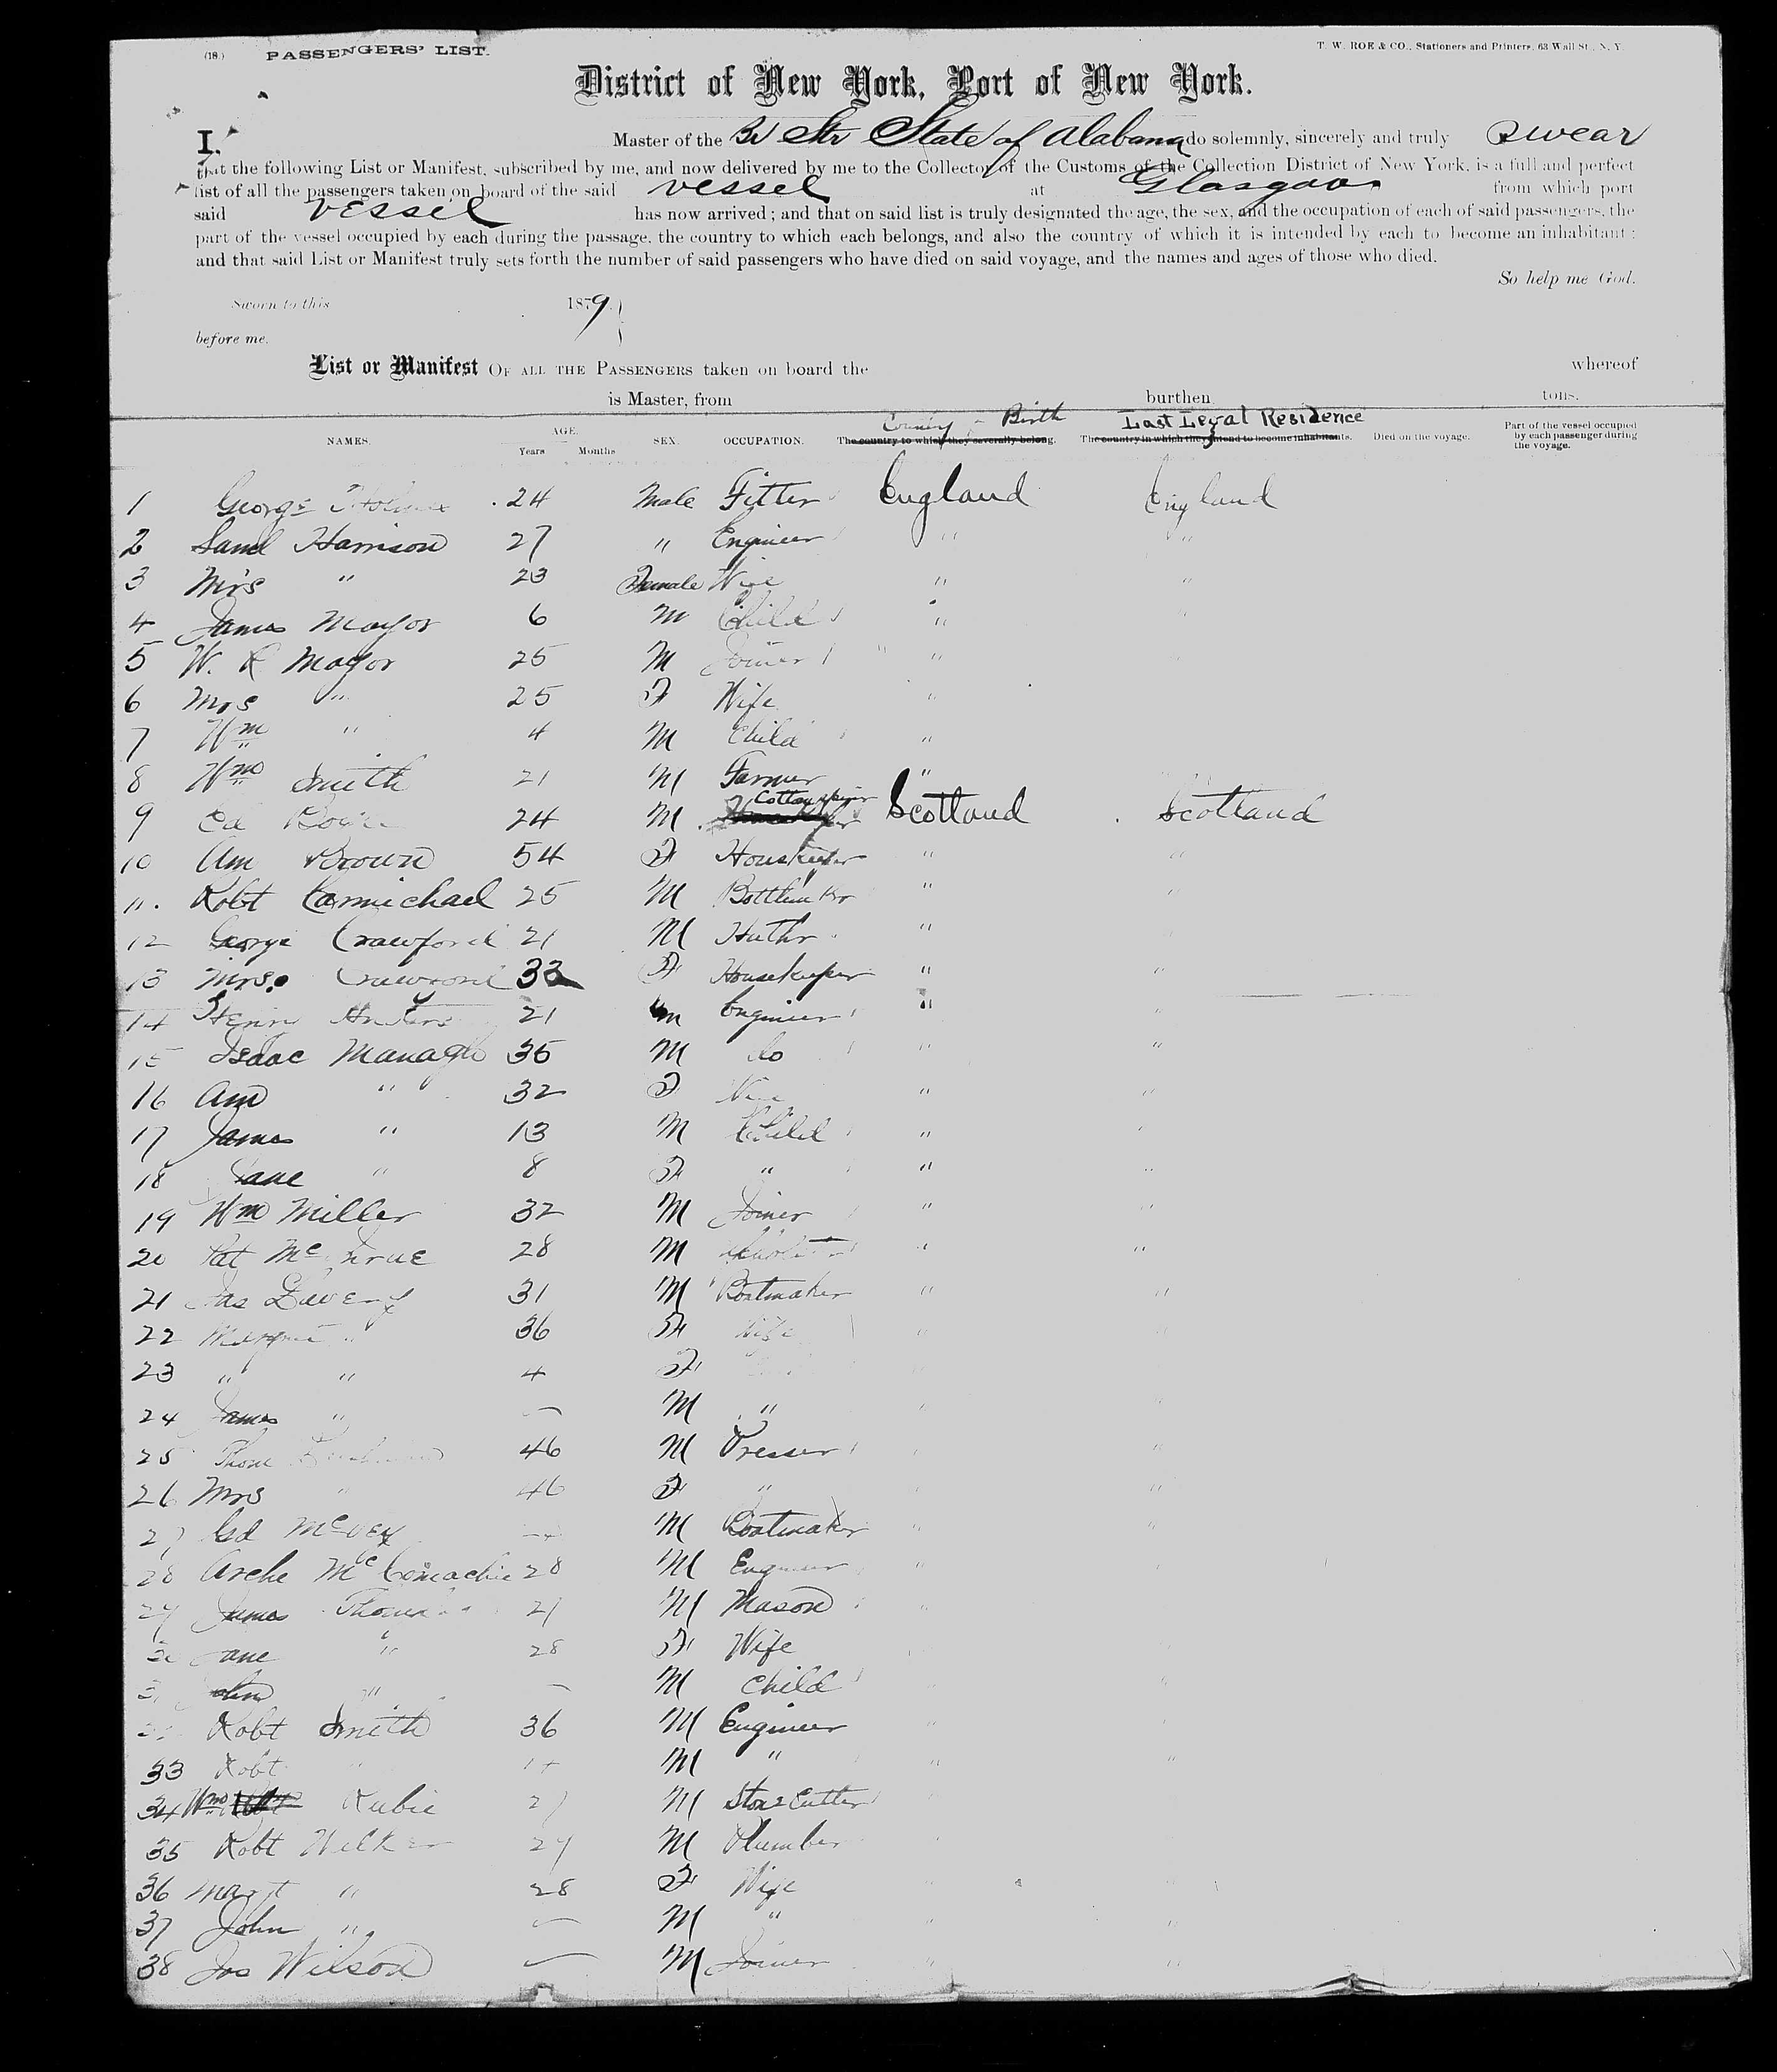 (18.) PASSENGERS' LIST.
T. W. ROE & CO., Stationers and Printers, 63 Wall St., N. Y.
District of New York, Port of New York.
I, Master of the Br Str State of Alabama do solemnly, sincerely and truly swear
that the following List or Manifest, subscribed by me, and now delivered by me to the Collector of the Customs of the Collection District of New York, is a full and perfect
list of all the passengers taken on board of the said vessel at Glasgow from which port
said vessel has now arrived; and that on said list is truly designated the age, the sex, and the occupation of each of said passengers, the
part of the vessel occupied by each during the passage, the country to which each belongs, and also the country of which it is intended by each to become an inhabitant;
and that said List or Manifest truly sets forth the number of said passengers who have died on said voyage, and the names and ages of those who died.
So help me God.
Sworn to this 1879
before me.
List or Manifest OF ALL THE PASSENGERS taken on board the whereof
is Master, from burthen tons.
Country of Birth Last Legal Residence
NAMES. AGE. Years Months SEX. OCCUPATION. The country to which they severally belong. The country in which they intend to become inhabitants. Died on the voyage. Part of the vessel occupied by each passenger during the voyage.
1 George 24 Male Fitter England England
2 Saml Harrison 27 " Engineer " "
3 Mrs " 23 Female Wife " "
4 James Mayor 6 M Child " "
5 W. R Mayor 25 M Joiner " "
6 Mrs " 25 F Wife "
7 Wm " 4 M Child "
8 Wm Smith 21 M Farmer "
9 Ed 24 M Cotton Scotland Scotland
10 Ann Brown 54 F Housekeeper " "
11. Robt Carmichael 25 M " "
12 George Crawford 21 M "
13 Mrs. Crawford 33 F Housekeeper " "
14 Henry 21 M Engineer " "
15 Isaac Managh 35 M do " "
16 Ann " 32 F Wife " "
17 James " 13 M Child " "
18 Jane " 8 F " " "
19 Wm Miller 32 M Joiner " "
20 Pat 28 M " "
21 Jas 31 M Bootmaker " "
22 " 36 F Wife " "
23 " " 4 F
24 James " — M "
25 Thom 46 M Presser "
26 Mrs " 46 F " "
27 McVey M Bootmaker " "
28 Arch 28 M Engineer "
29 James 21 M Mason "
30 Jane " 28 F Wife
31 John " — M Child
32 Robt Smith 36 M Engineer "
33 Robt M " " "
34 Wm Rubie 27 M Stone Cutter
35 Robt 29 M Plumber
36 Margt " 28 F Wife
37 John " — M " "
38 Jos Wilson — M Joiner " "